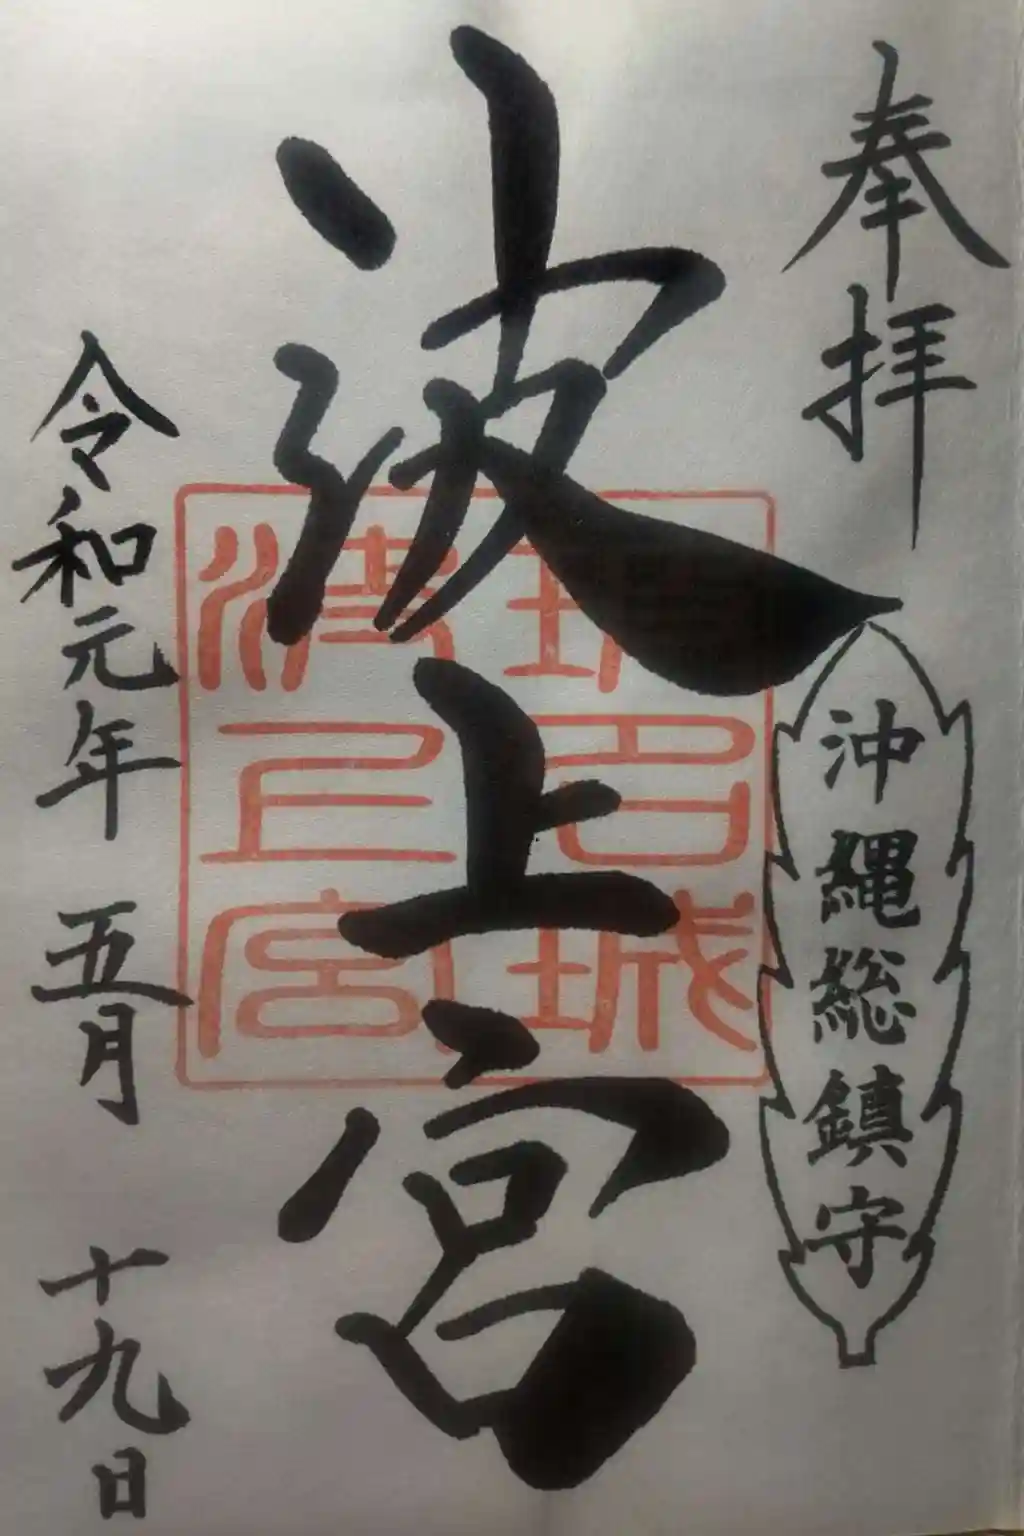 奉拝
沖縄総鎮守
波上宮
令和元年 五月 十九日
波上宮